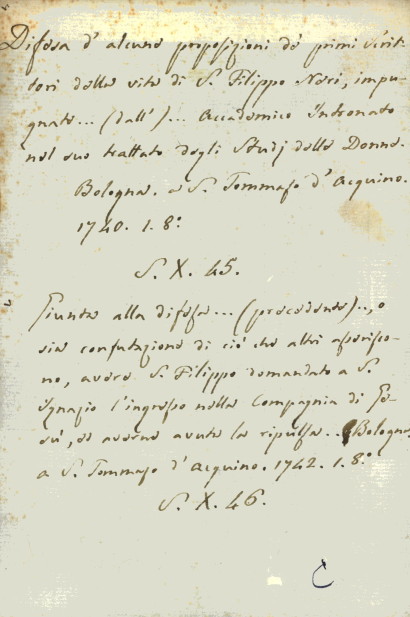 Difesa d'alcune proposizioni de' primi Scrit-
tori della vita di S. Filippo Neri, impu-
gnate... (dall')... Accademico Intronato
nel suo trattato degli Studj delle Donne.
Bologna. a S. Tommaso d'Acquino.
1740. 1. 8:°
S. X. 45.
Giunta alla difesa... (precedente).., o
sia confutazione di ciò che altri asserisco-
no, avere S. Filippo domandato a S.
Ignazio l'ingresso nella Compagnia di Ge-
sù, ed averne avuta la ripulsa... Bologna,
a S. Tommaso d'Acquino. 1742. 1. 8:°
S. X. 46.
C